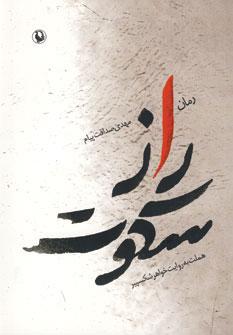 رمان
مهدی صداقت پیام
راز
سکوت
هملت به روایت خواهر شکسپیر